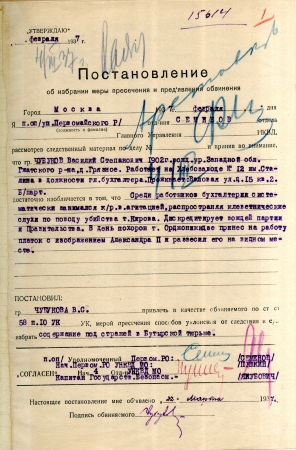 15614
1
„УТВЕРЖДАЮ"
февраля 1937
Постановление
об избрании меры пресечения и предъявлении обвинения
Город Москва 1937 февраля дня
Я п.оп/ун.Первомайского Р/ СЕМЕНОВ
(должность и фамилия)
Главного Управления НКВД,
рассмотрев следственный материал по делу № и приняв во внимание,
что гр. ЧУБУКОВ Василий Степанович 1902 г. рожд. ур. Западной обл.
Гжатского р-на,д.Грязное. Работает на Хлебозаводе № 12 им.Ста-
лина в должности гл.бухгалтера.Проживает:Валовая ул.15 кв.2.
Б/парт.
достаточно изобличается в том, что Среди работников бухгалтерии система-
тически занимался к/р.з.агитацией,распространяя клеветнические
слухи по поводу убийства т.Кирова. Дискредитирует вождей партии
и Правительства. В День похорон т. Орджоникидзе принес на работу
платок с изображением Александра II и развесил его на видном ме-
сте.
ПОСТАНОВИЛ:
ЧУБУКОВА В.С. привлечь в качестве обвиняемого по ст
58 п.10 УК УК, мерой пресечения способов уклонения от следствия и суда
избрать содержание под стражей в Бутырской тюрьме.
п.оп/ Уполномоченный Первом.РО: /СЕМЕНОВ/
Нач.Первом.РО УНКВД МО
„СОГЛАСЕН" Нач. 4 УНКВД МО
Капитан Государств.Безопасн. /ЯКУБОВИЧ/
Настоящее постановление мне объявлено 22 Марта 1937.
Подпись обвиняемого